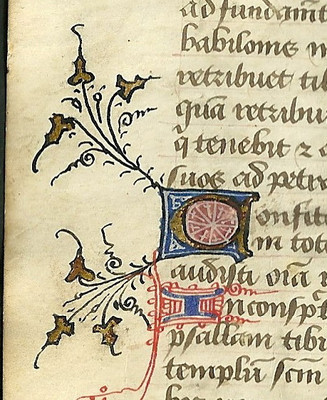 ad fundamēt
babilonis m
retribuet ti
quā retribu
q̄ tenebit ⁊
suos ad petr
Confit
in tot
audisti oīa
Inconspc̄t
psallam tibi
templū scm̄